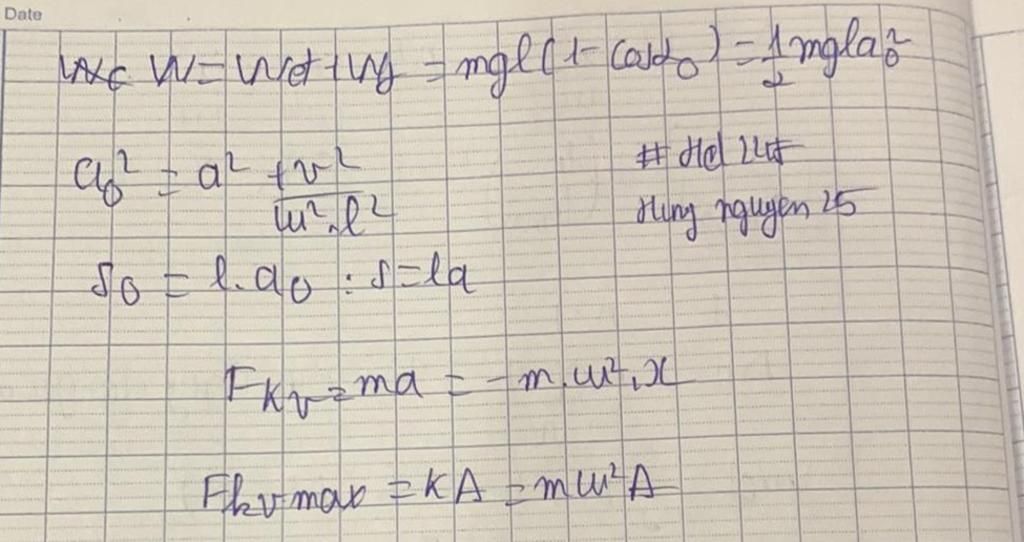 Date
W = Wđ + Wt = mgl(1 - cosα₀) = 1/2 mglα₀²
α₀² = α² + v²/ω².l²
# Hd
Hung nguyen 25
S₀ = l.α₀ : s = lα
Fkv = ma = -m.ω².x
Fkv max = kA = mω²A